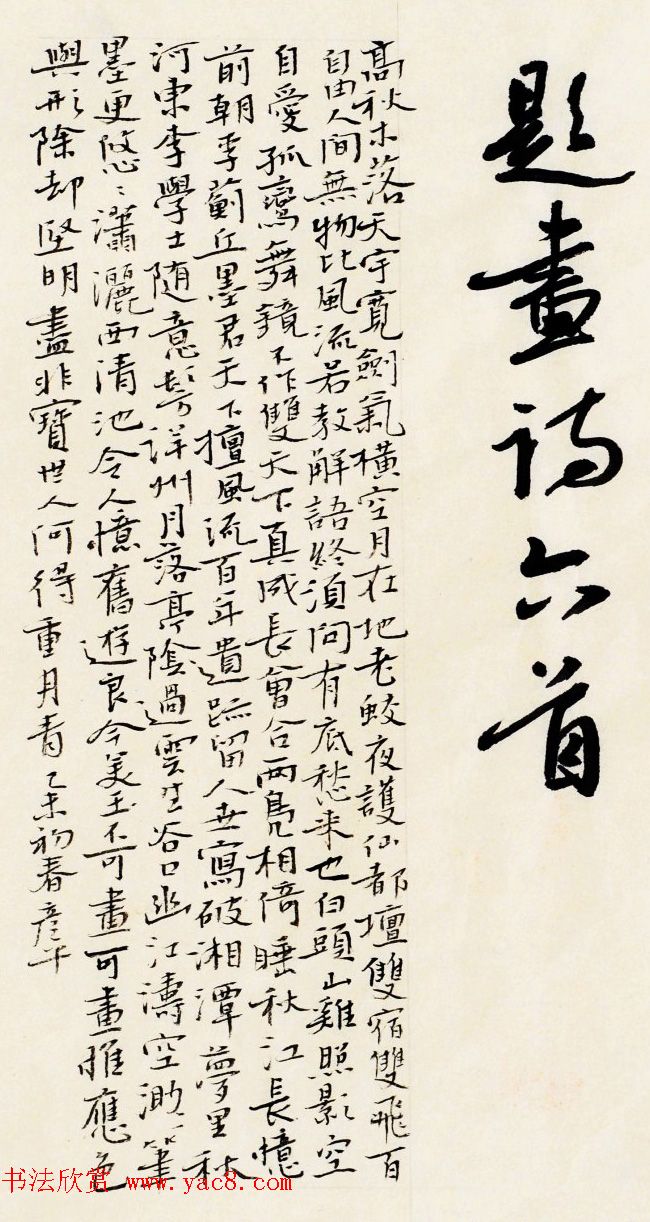 題畫詩六首
高秋木落天宇寬劍氣橫空月在地老蛟夜護仙都壇雙宿雙飛百
自由人間無物比風流若教解語終須問有底愁来也白頭山雞照影空
自愛孤鸞舞鏡不作雙天下真成長會合兩鳧相倚睡秋江長憶
前朝李薊丘墨君天下擅風流百年遺跡留人世寫破湘潭夢里秋
河東李學士随意髣洋州月落亭陰過雲生谷口幽江濤空渺筆
墨更悠〻瀟灑西清池令人憶舊遊良今美玉不可畫可畫惟應色
與形除却堅明盡非寶世人何得重丹青乙未初春彥平
书法欣赏 www.yac8.com